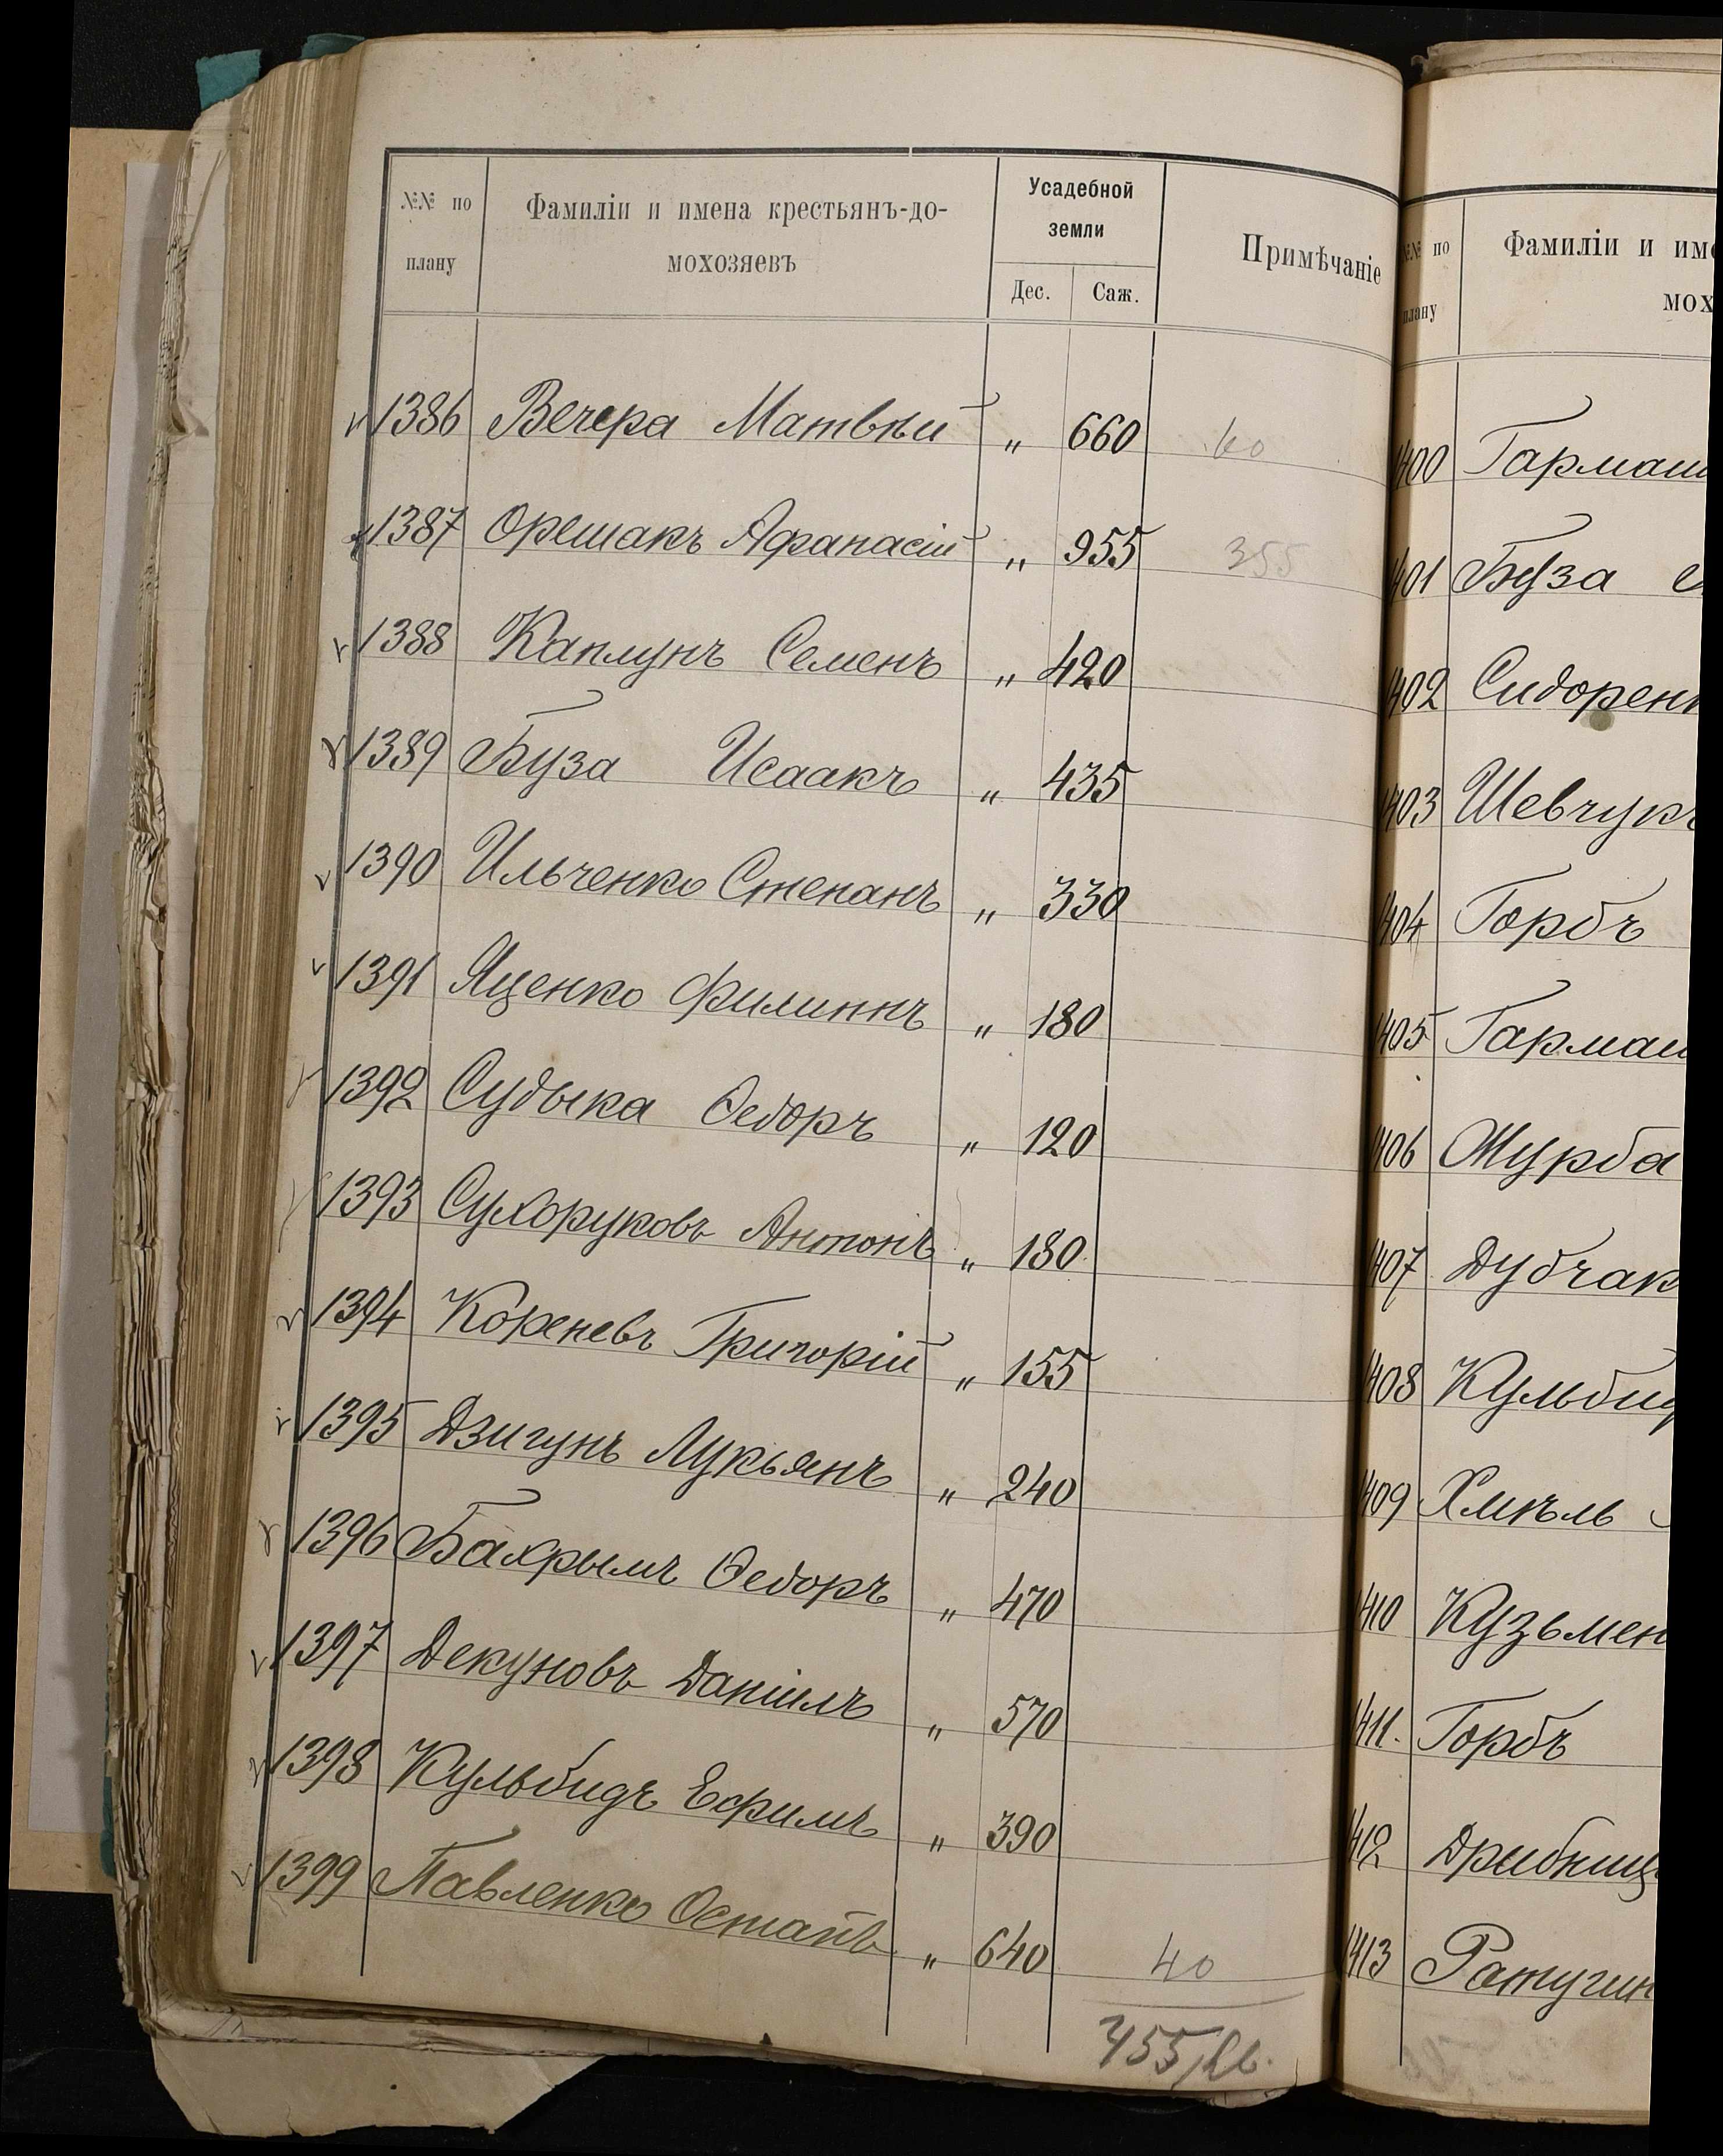 №№ по плану
Фамиліи и имена крестьянъ-до-
мохозяевъ
Усадебной
земли
Дес. Саж.
Примѣчаніе
1386 Вечера Матвѣй „ 660 60
1387 Орешакъ Афанасій „ 955 355
1388 Каплунъ Семенъ „ 420
1389 Буза Исаакъ „ 435
1390 Ильченко Степанъ „ 330
1391 Яценко Филиппъ „ 180
1392 Судыка Ѳедоръ „ 120
1393 Сухоруковъ Антонъ „ 180
1394 Кореневъ Григорій „ 155
1395 Дзигунъ Лукьянъ „ 240
1396 Бахрымъ Ѳедоръ „ 470
1397 Декуновъ Даніилъ „ 570
1398 Кульбидъ Ефимъ „ 390
1399 Павленко Остапъ „ 640 40
455
№№ по
плану
Фамиліи и име
мох
400 Гармаш
401 Буза
402 Сидорен
403 Шевчукъ
404 Горбъ
405 Гармаш
406 Журба
407 Дубчак
408 Кульбид
409 Хмѣль
410 Кузьмен
411. Горбъ
412 Дрибниц
413 Ратугин